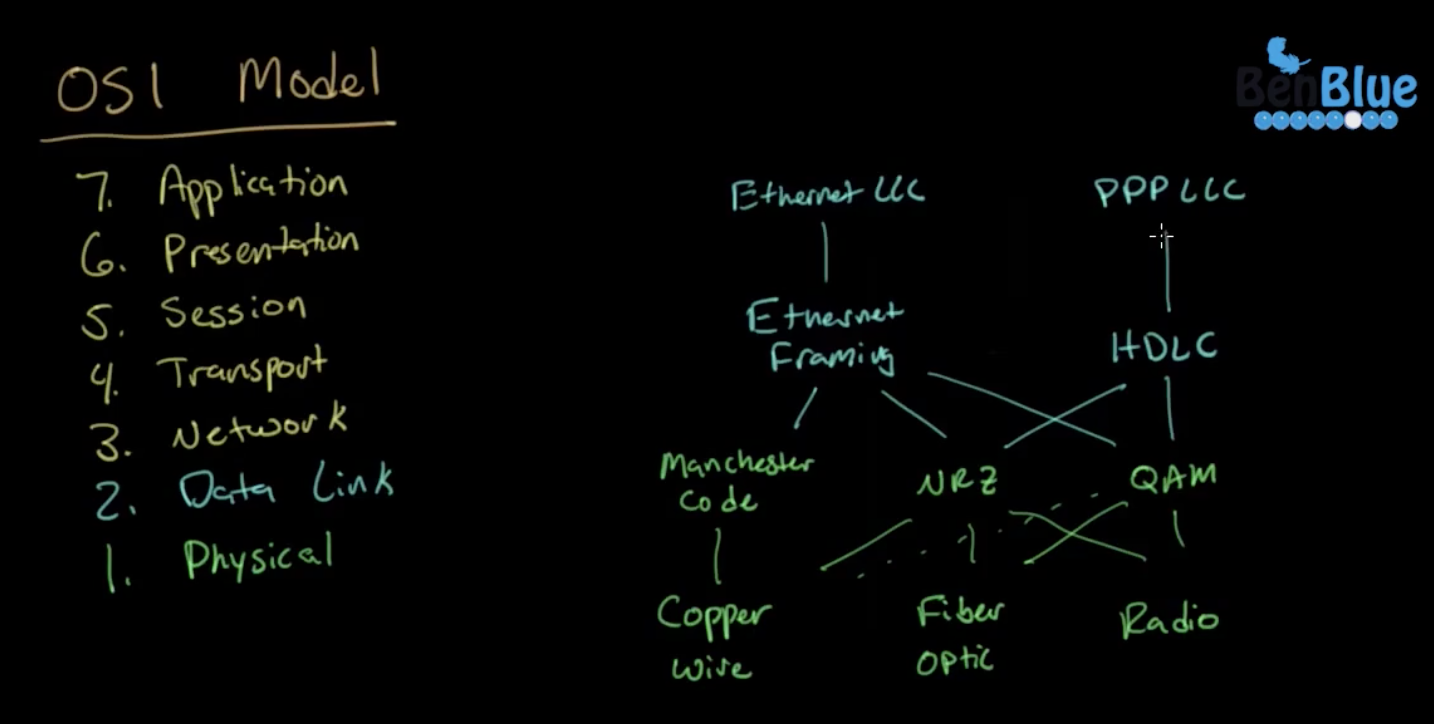 OSI Model
7. Application
6. Presentation
5. Session
4. Transport
3. Network
2. Data Link
1. Physical
BenBlue
Ethernet LLC
PPP LLC
Ethernet
Framing
HDLC
Manchester
Code
NRZ
QAM
Copper
Wire
Fiber
Optic
Radio